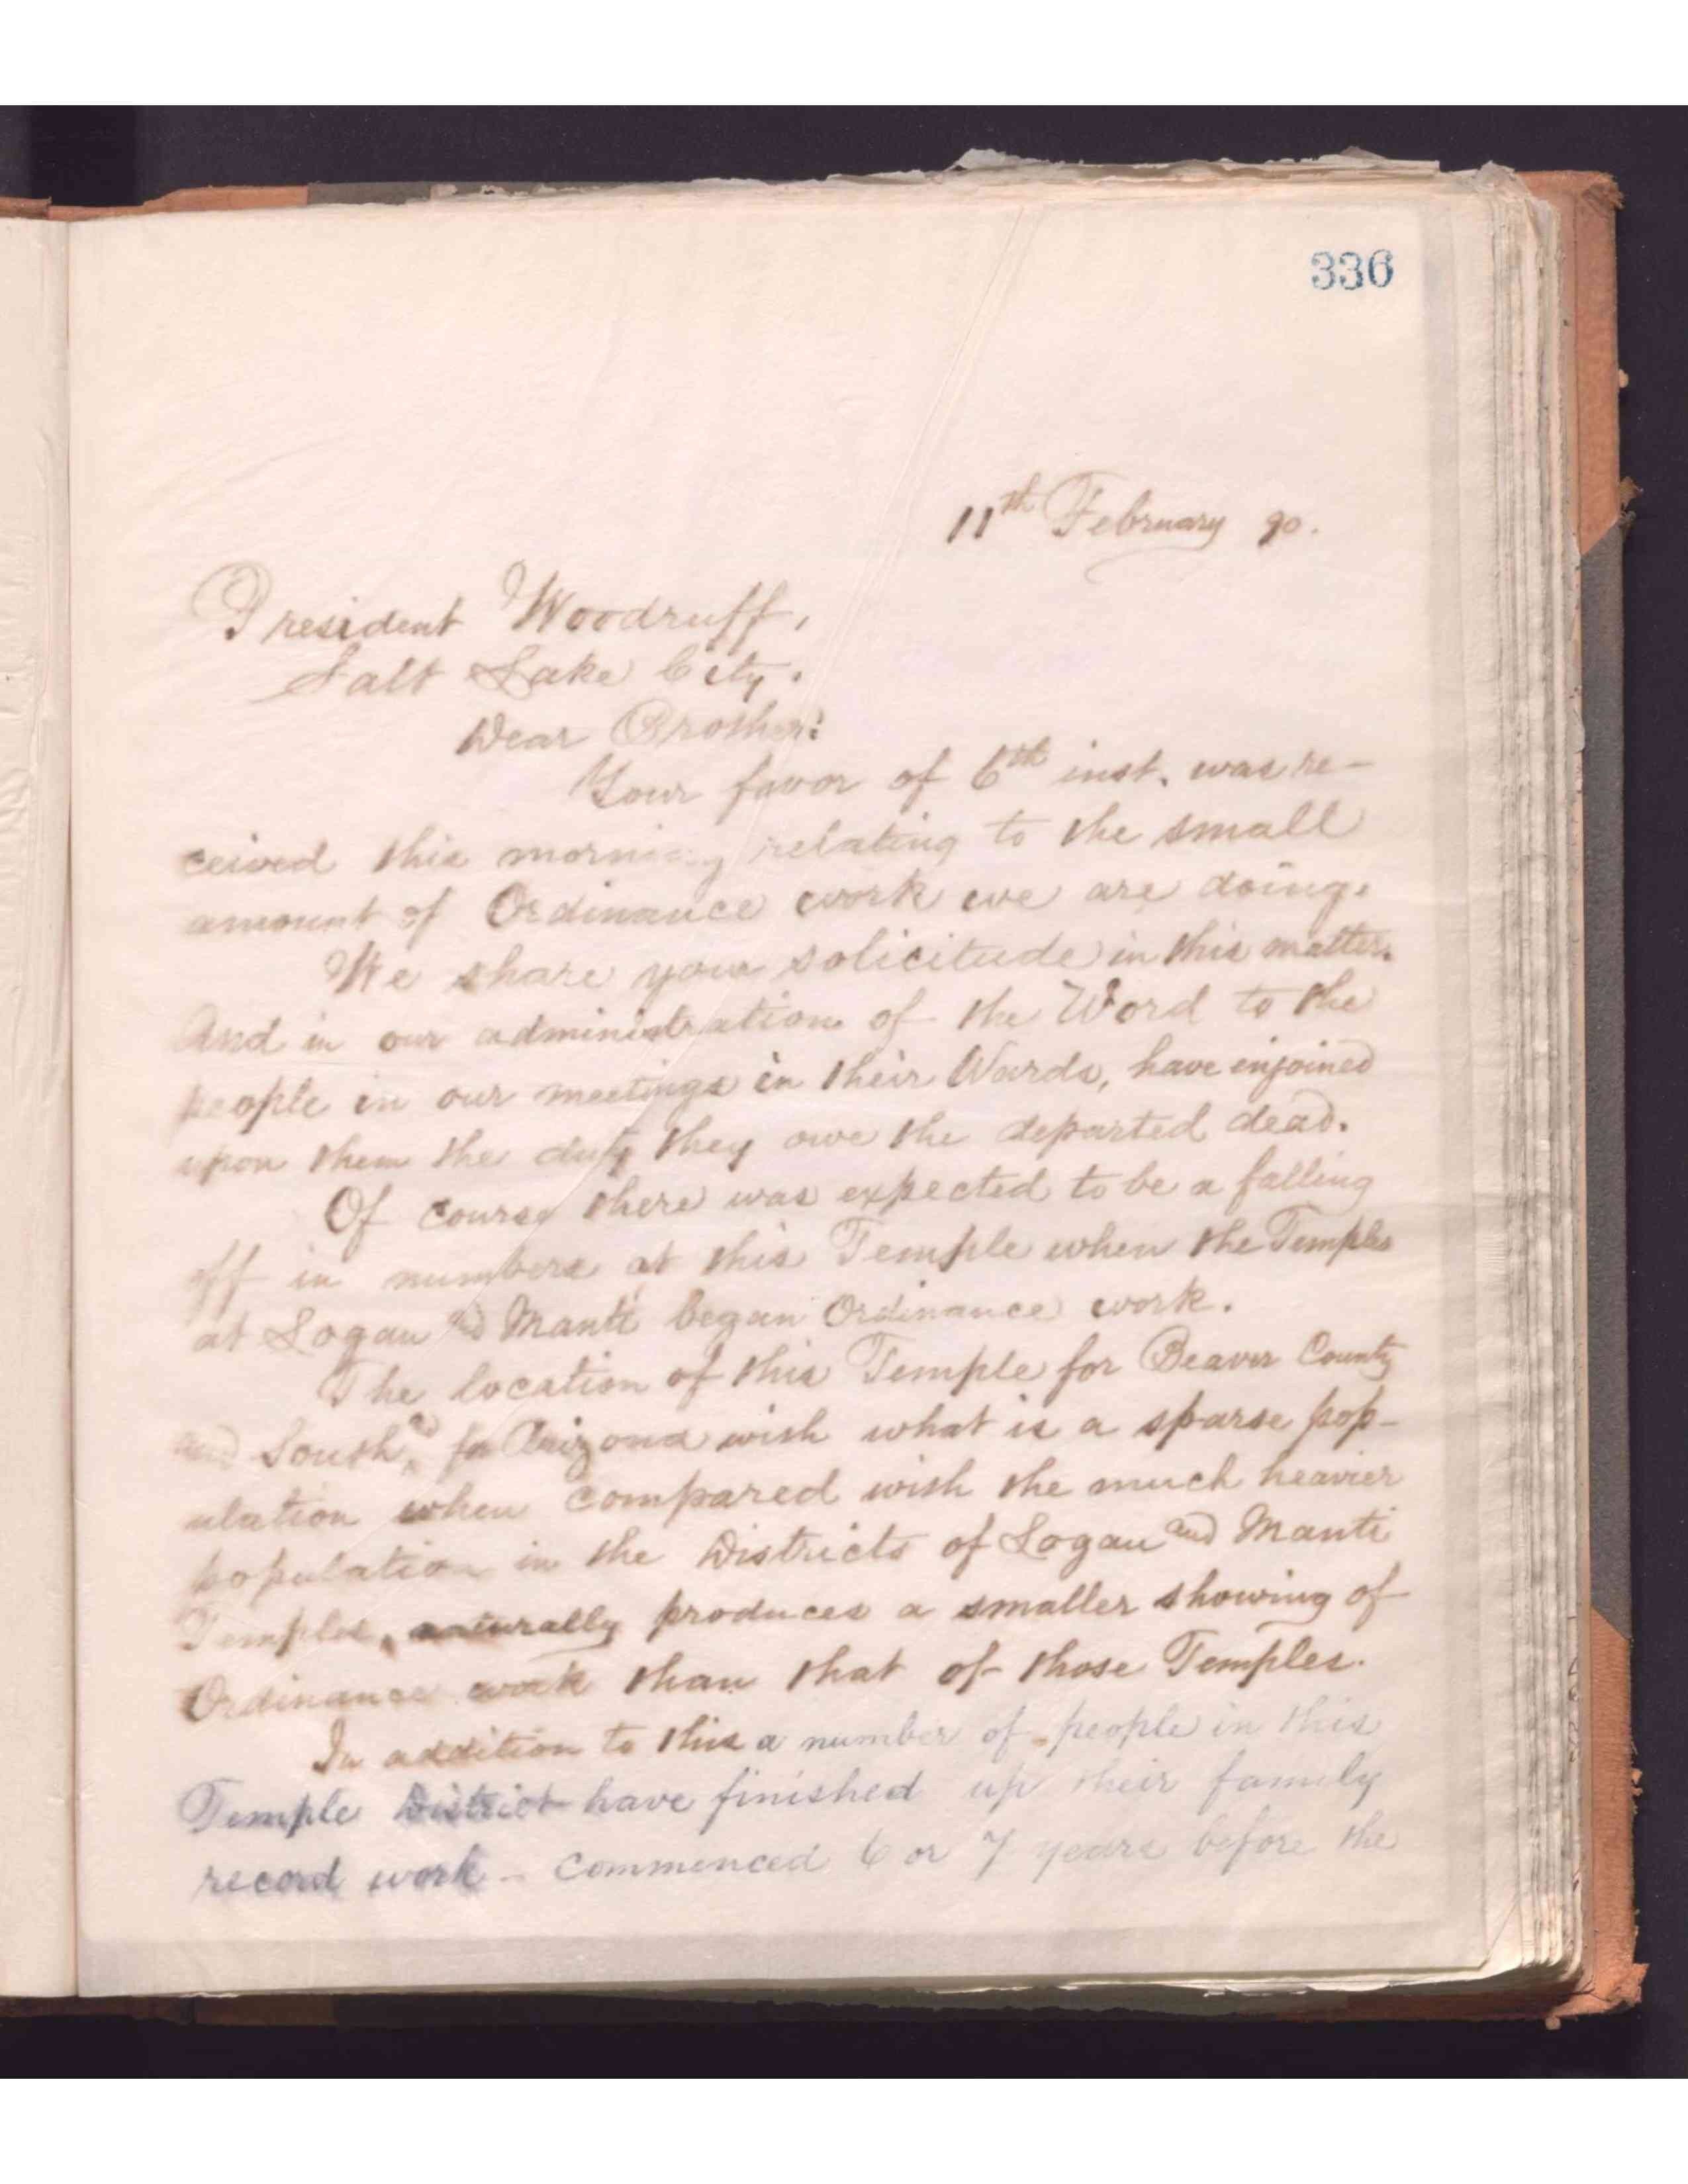 336
11th February 90.
President Woodruff,
Salt Lake City.
Dear Brother:
Your favor of 6th inst. was re-
ceived this morning relating to the small
amount of Ordinance work we are doing.
We share your solicitude in this matter.
And in our administration of the Word to the
people in our meetings in their Wards, have enjoined
upon them the duty they owe the departed dead.
Of course there was expected to be a falling
off in numbers at this Temple when the Temples
at Logan and Manti began Ordinance work.
The location of this Temple for Beaver County
and South, and for Arizona with what is a sparse pop-
ulation when compared with the much heavier
population in the Districts of Logan and Manti
Temples, naturally produces a smaller showing of
Ordinance work than that of those Temples.
In addition to this a number of people in this
Temple District have finished up their family
record work - commenced 6 or 7 years before the